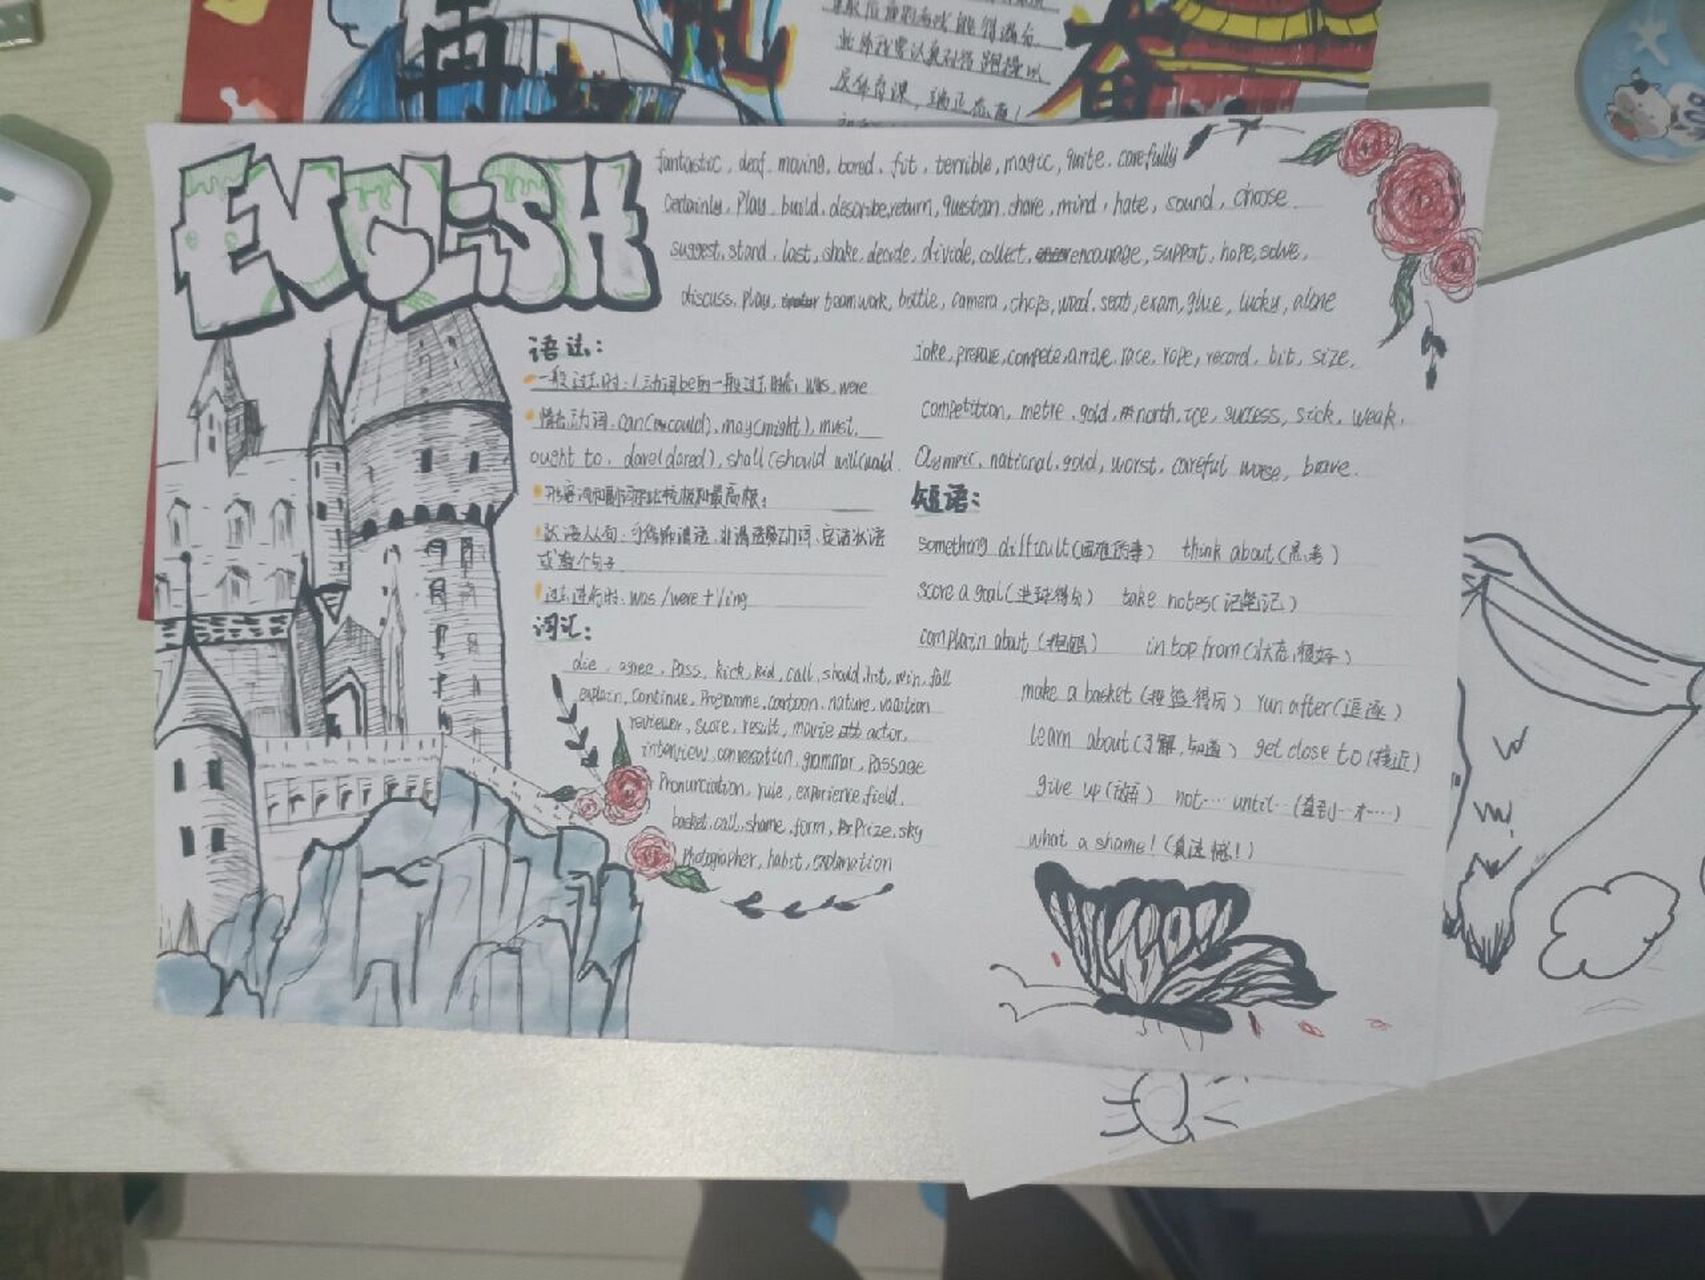 再
奋
反体育课，端正态度！
ENGLiSH
fantastic, deaf, moving, bored, fit, terrible, magic, quite, carefully
Certainly, Play, build, describe, return, question, share, mind, hate, sound, choose
suggest, stand, last, shake, decide, divide, collect, encourage, support, hope, solve,
discuss, play, teamwork, bottle, camera, chips, wood, seat, exam, glue, lucky, alone
joke, prepare, compete, arrive, race, rope, record, bit, size,
competition, metre, gold, north, ice, success, sick, weak,
Olympic, national, gold, worst, careful worse, brave.
语法：
一般过去时：1动词be的一般过去时态：was, were
情态动词, can(could), may(might), must,
ought to, dare(dared), shall(should will(would
形容词和副词的比较级和最高级：
状语从句：可修饰谓语、非谓语动词、定语状语
或整个句子
过去进行时：was/were + V ing
词汇：
die, agree, pass, kick, kid, call, should, hit, win, fall
explain, continue, Programme, cartoon, nature, vacation
reviewer, score, result, movie actor,
interview, conversation, grammar, Passage
Pronunciation, rule, experience, field,
basket, call, shame, form, Prize, sky
Photographer, habit, explanation
短语：
something difficult(困难的事) think about(思考)
score a goal(进球得分) take notes(记笔记)
complain about (抱怨) in top from(状态很好)
make a basket (投篮得分) run after(追逐)
learn about(了解,知道) get close to(接近)
give up(放弃) not… until…(直到…才……)
what a shame!(真遗憾!)